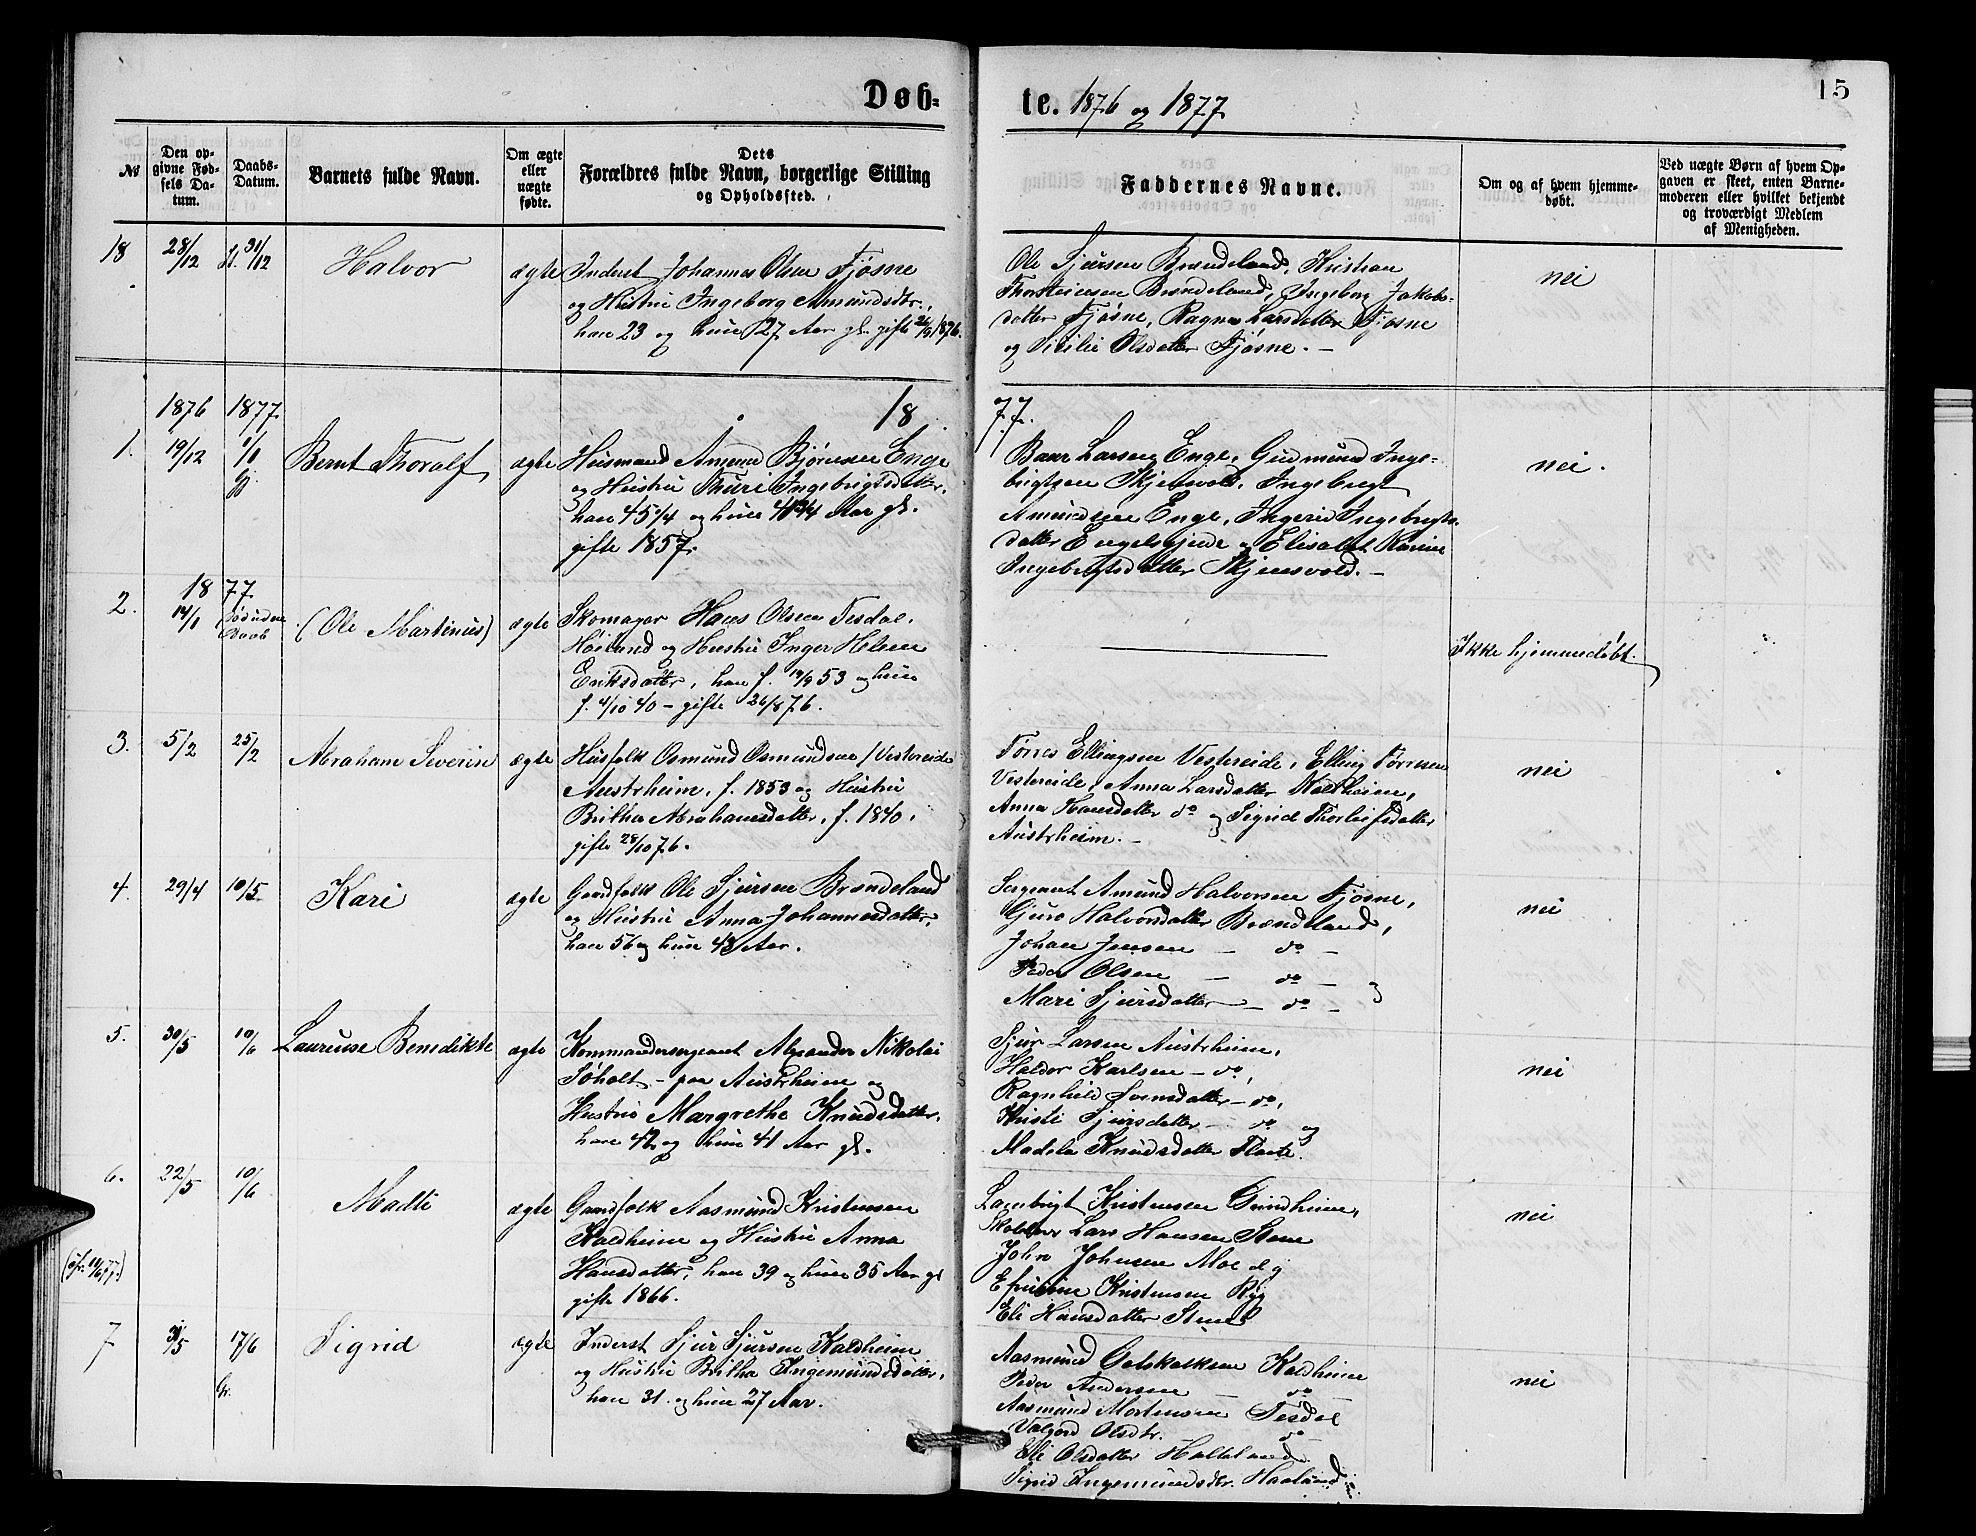 Døb=
te. 1876 og 1877
15
№
Den op-
givne Fød-
sels Da-
tum.
Daabs-
Datum.
Barnets fulde Navn.
Om ægte
eller
uægte
fødte.
Dets
Forældres fulde Navn, borgerlige Stilling
og Opholdssted.
Faddernes Navne.
Om og af hvem hjemme-
døbt.
Ved uægte Børn af hvem Op-
gaven er skeet, enten Barne-
moderen eller hvilket bekjendt
og troværdigt Medlem
af Menigheden.
18
28/12
31/12
Halvor
ægte
Inderst Johannes Olsen Fjøsne
og Hustru Ingeborg Amundsdtr.,
han 23 og hun 27 Aar gl. gifte 26/9 1876.
Ole Sjursen Brændeland, Kristian
Thorsteinsen Brændeland, Ingeborg Jakobs-
datter Fjøsne, Ragna Larsdatter Fjøsne
og Sicilie Olsdatter Fjøsne. –
nei
1876 1877
18
77.
1.
19/12
1/1
Bernt Thoralf
ægte
Husmand Amund Bjørnsen Enge
og Hustru Thuri Ingebrigtsdatter,
han 45 1/4 og hun 41 3/4 Aar gl.
gifte 1857.
Baar Larsen Enge, Gudmund Inge-
brigtsen Skjensvold, Ingebregt
Amundsen Enge, Ingerid Ingebregts-
datter Engelsgjerde og Elisabet Karine
Ingebregtsdatter Skjensvold. –
nei.
18 77
2.
14/1
Død uden
Daab
(Ole Martinus)
ægte
Skomager Hans Olsen Tesdal,
Høiland og Hustru Inger Helene
Eriksdatter, han f. 14/9 53 og hun
f. 4/10 40 – gifte 26/8 76.
Ikke hjemmedøbt.
3.
5/2
25/2
Abraham Severin
ægte
Husfolk Osmund Osmundsen (Vestereide)
Austrheim, f. 1853 og Hustru
Britha Abrahamsdatter, f. 1840,
gifte 28/10 76.
Torres Ellingsen Vestereide, Elling Torresen
Vestereide, Anna Larsdatter Kaldheim,
Anna Hansdatter do og Sigrid Thorleifsdatter
Austrheim. –
nei
4.
29/4
10/5
Kari
ægte
Gaardfolk Ole Sjursen Brændeland
og Hustru Anna Johannesdatter,
han 56 og hun 43 Aar.
Sergeant Amund Halvorsen Fjøsne,
Guro Halvorsdatter Brændeland,
Johan Jensen – do –
Peder Olsen – do – og
Mari Sjursdatter – do –
nei
5.
30/5
10/6
Laurense Benedikte
ægte
Kommandersergeant Alexander Nikolai
Søholt – paa Austrheim og
Hustru Margrethe Knudsdatter,
han 42 og hun 41 Aar gl.
Sjur Larsen Austrheim,
Haldor Karlsen – do,
Ragnhild Svensdatter – do,
Kristi Sjursdatter – do og
Madela Knudsdatter Flaate.
nei
6.
22/5
10/6
Madli
ægte
Gaardfolk Aasmund Kristensen
Kaldheim og Hustru Anna
Hansdatter, han 39 og hun 35 Aar gl
gifte 1866.
Lambrigt Kristensen Grindheim,
Skolelærer Lars Hansen Stene
John Johnsen Moe og
Efrosine Kristensen Ryg
Eli Hansdatter Stene
nei
7
31/5
17/6
Sigrid
ægte
Inderst Sjur Sjursen Kaldheim
og Hustru Britha Ingemundsdatter,
han 31 og hun 27 Aar.
Aasmund Gotskalksen Kaldheim
Peder Andersen – do
Aasmund Mortensen Tesdal
Valgerd Olsdtr. do
Eli Olsdatter Halleland
Sigrid Ingemundsdtr. Haaland
nei